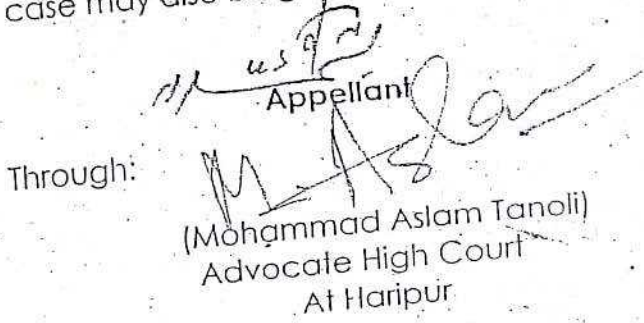 case may also be g
Appellant
Through:
M. Aslam
(Mohammad Aslam Tanoli)
Advocate High Court
At Haripur